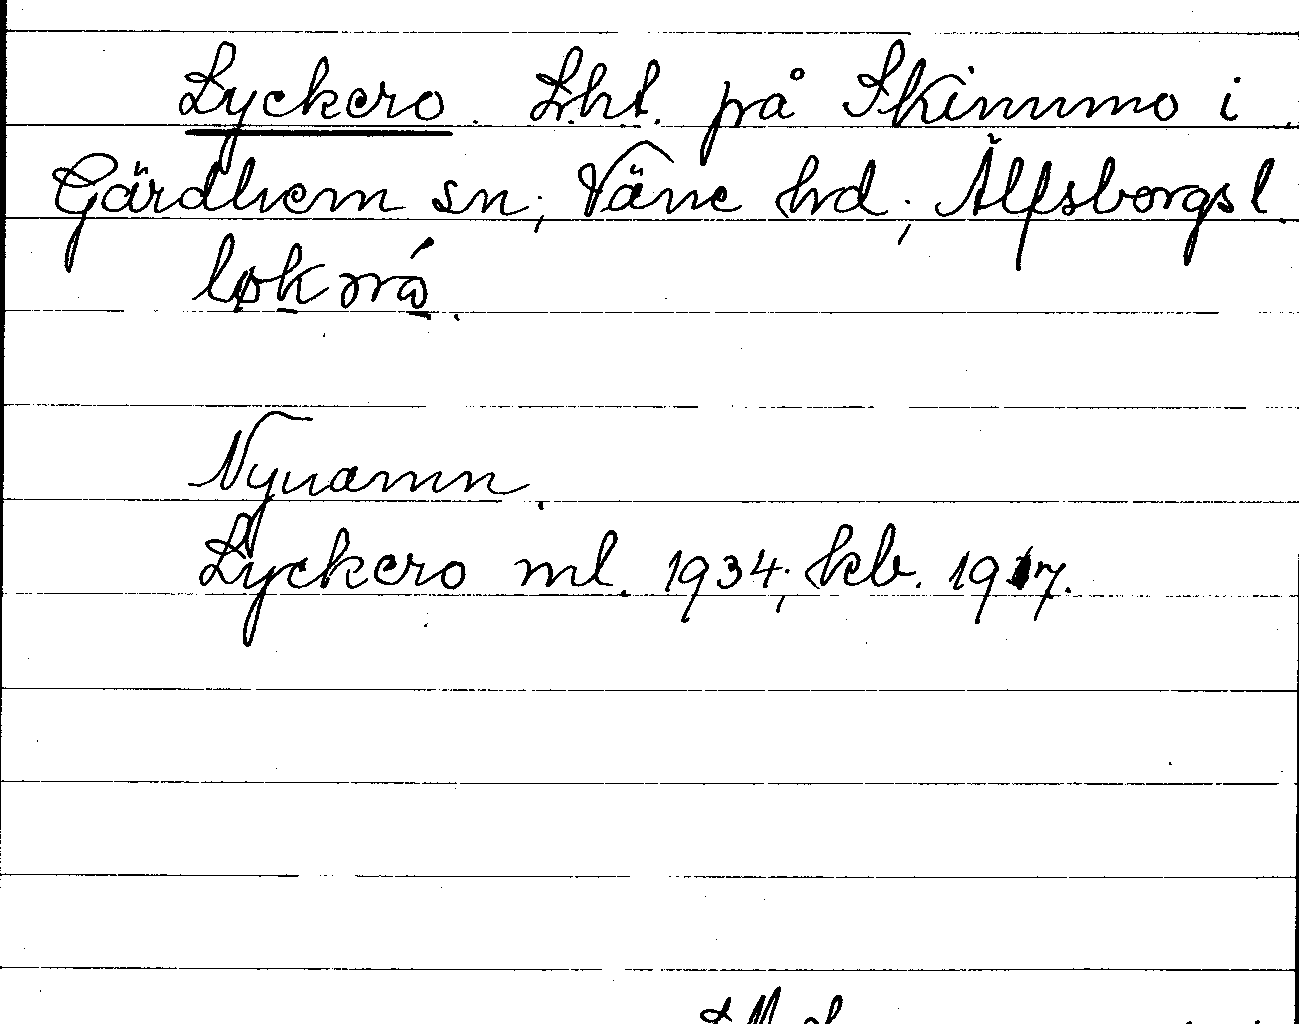 Lyckero. Lht. på Skinnmo i
Gärdhem sn; Väne hd; Älfsborgs l.
Nynamn.
Lyckero ml. 1934; kb. 1917.